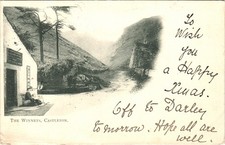 To
Wish
you
a
Happy
Xmas.
Off to Darley
to morrow. Hope all are
well.
THE WINNATS, CASTLETON.